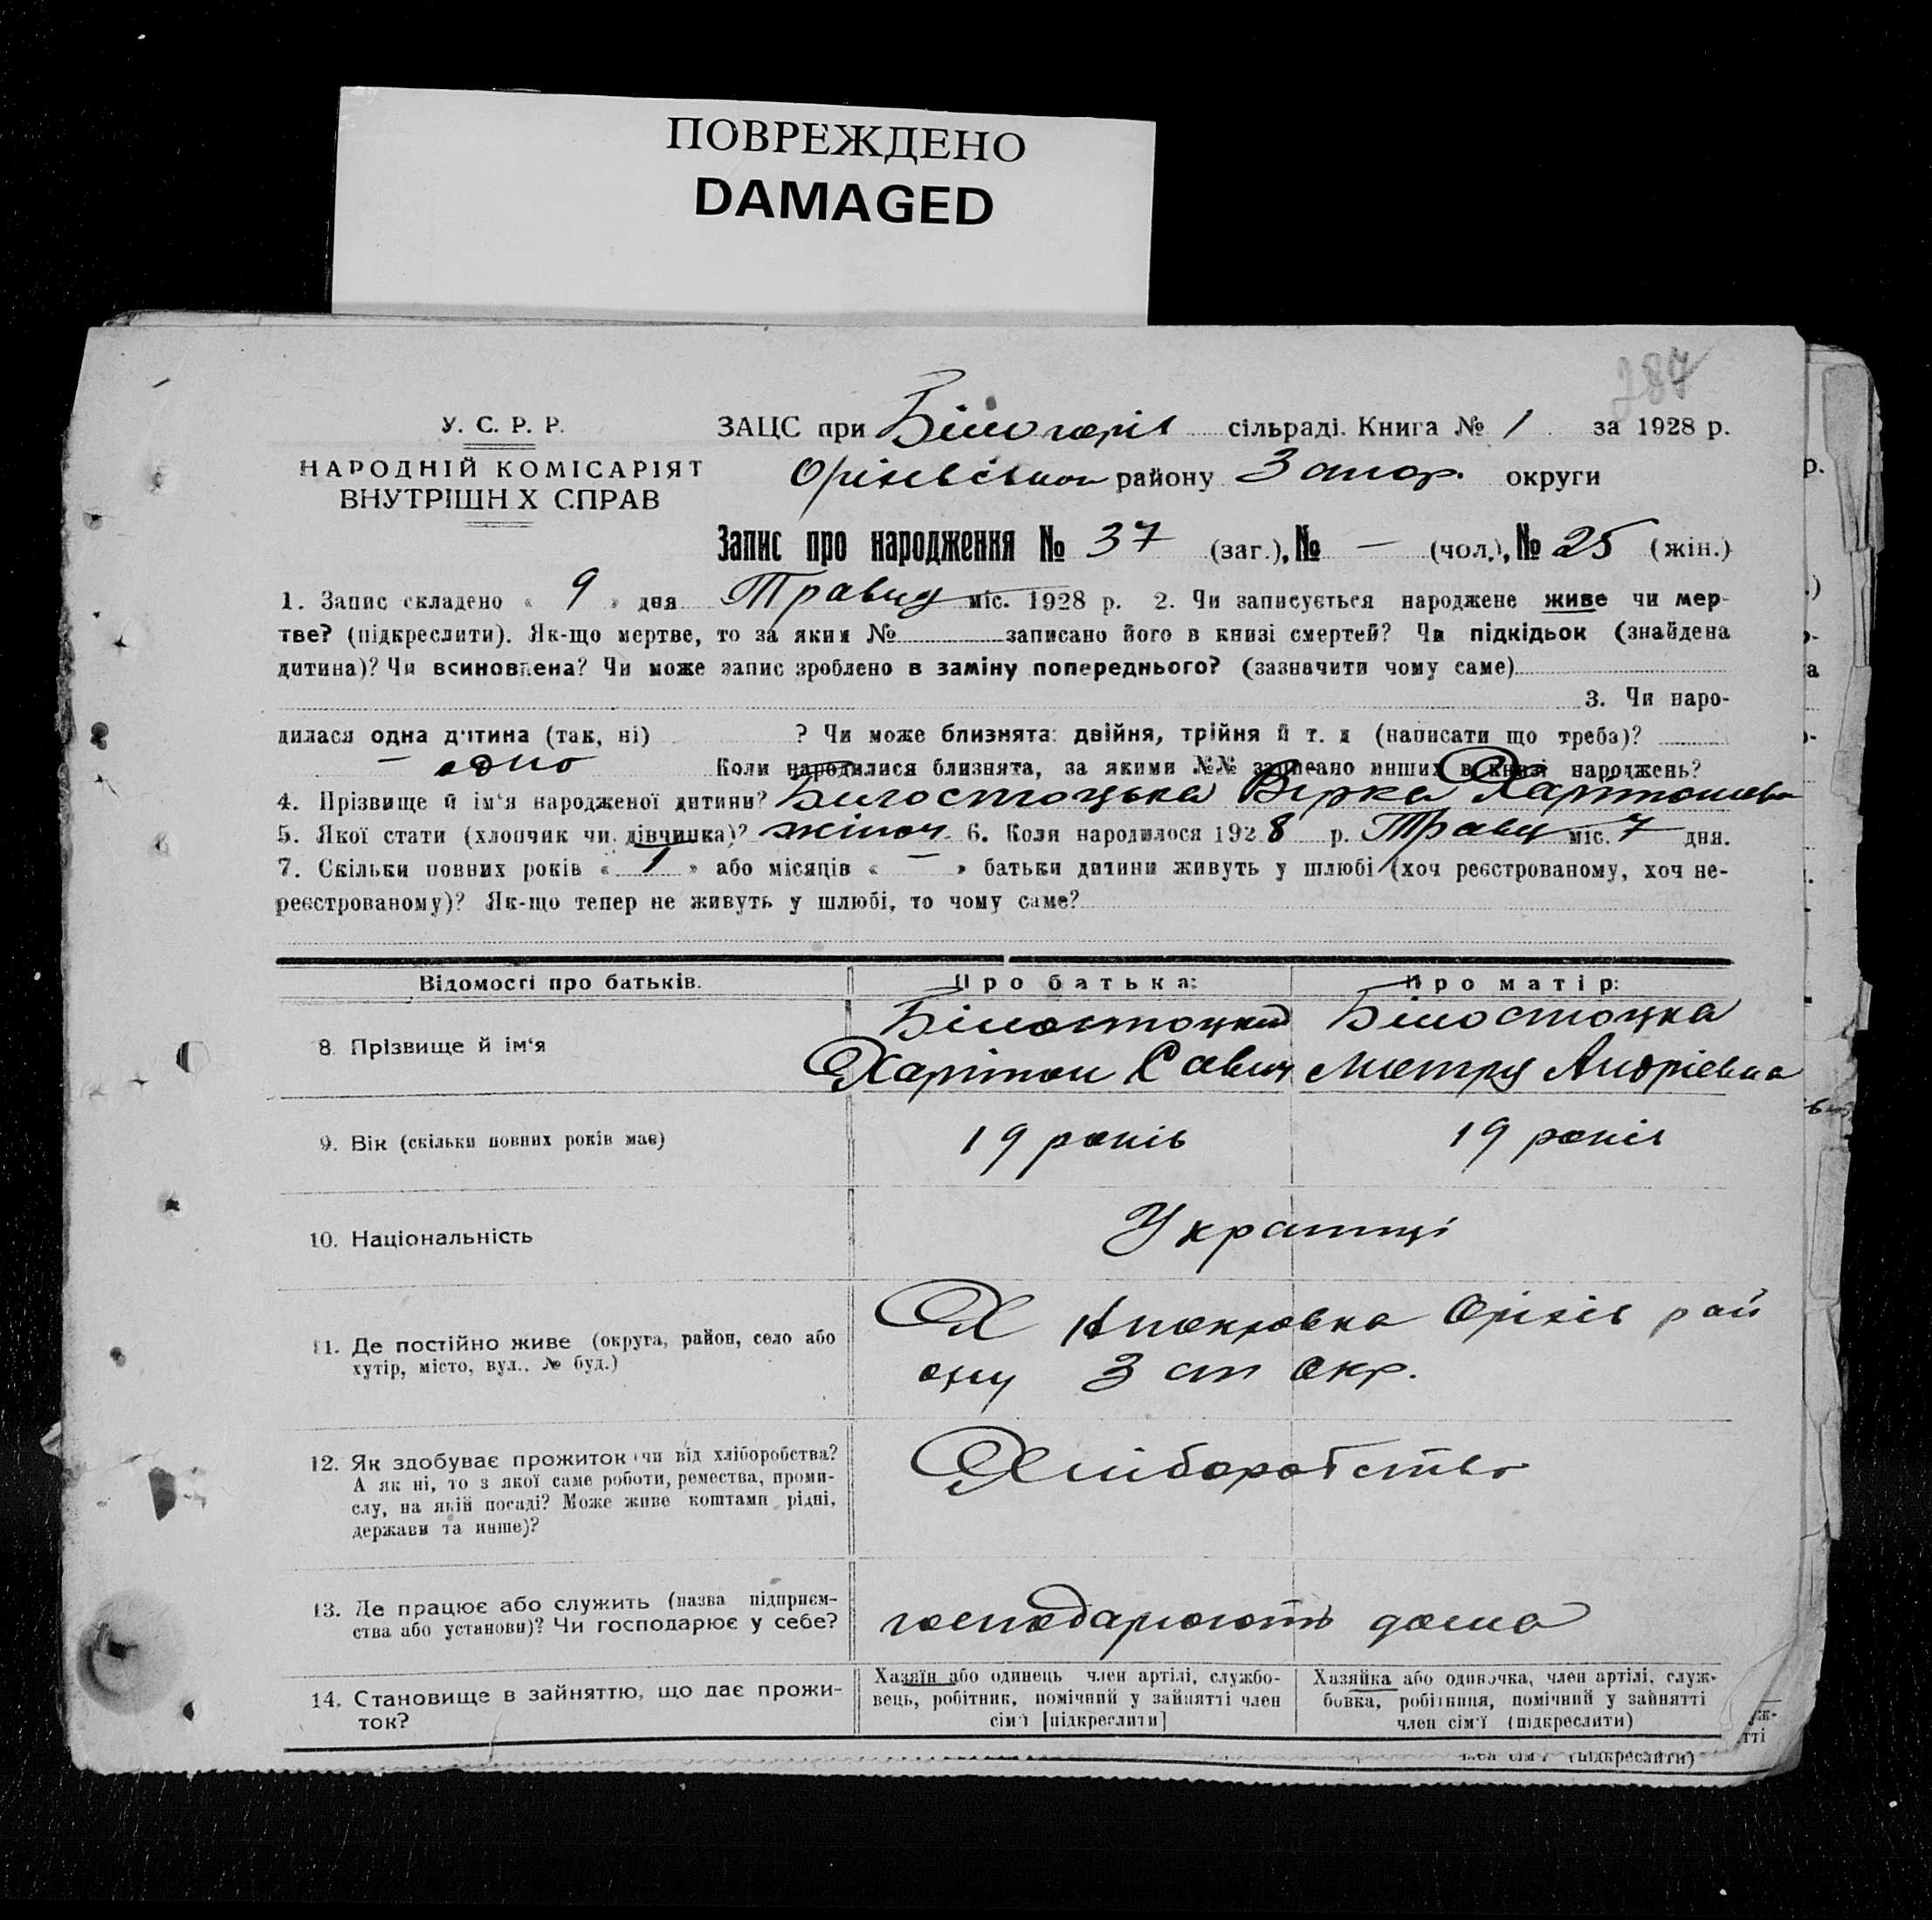 ПОВРЕЖДЕНО
DAMAGED
287
У. С. Р. Р.
НАРОДНІЙ КОМІСАРІЯТ
ВНУТРІШН Х СПРАВ
ЗАЦС при Білогорів сільраді. Книга № 1 за 1928 р.
Оріхівськог району Запор. округи
Запис про народження № 37 (заг.), № — (чол.), № 25 (жін.)
1. Запис складено « 9 » дня Травня міс. 1928 р. 2. Чи записується народжене живе чи мер-
тве? (підкреслити). Як-що мертве, то за яким № записано його в книзі смертей? Чи підкідьок (знайдена
дитина)? Чи всиновлена? Чи може запис зроблено в заміну попереднього? (зазначити чому саме)
3. Чи наро-
дилася одна дитина (так, ні) ? Чи може близнята: двійня, трійня й т. д (написати що треба)?
— одно Коли народилися близнята, за якими №№ записано инших в книзі народжень?
4. Прізвище й ім'я народженої дитини? Билостоцька Вірка Харитоновна
5. Якої стати (хлопчик чи дівчинка)? жіноч. 6. Коли народилося 1928 р. Травня міс. 7 дня.
7. Скільки повних років « 1 » або місяців « — » батьки дитини живуть у шлюбі (хоч реєстрованому, хоч не-
реєстрованому)? Як-що тепер не живуть у шлюбі, то чому саме?
Відомості про батьків. Про батька: Про матір:
8. Прізвище й ім'я
Білостоцкий Білостоцка
Харітон Савич Андрієвна
9. Вік (скільки повних років має) 19 років 19 років
10. Національність Українці
11. Де постійно живе (округа, район, село або
хутір, місто, вул., № буд.)
Х Оріхів рай
ону Зап Окр.
12. Як здобуває прожиток (чи від хліборобства?
А як ні, то з якої саме роботи, ремества, проми-
слу, на якій посаді? Може живе коштами рідні,
держави та инше)?
Хліборобство
13. Де працює або служить (назва підприєм-
ства або установи)? Чи господарює у себе?
господарюють дома
14. Становище в зайняттю, що дає прожи-
ток?
Хазяїн або одинець член артілі, службо-
вець, робітник, помічний у зайнятті член
сім'ї [підкреслити]
Хазяйка або одиночка, член артілі, служ-
бовка, робітниця, помічний у зайнятті
член сім'ї (підкреслити)
член сім'ї (підкреслити)